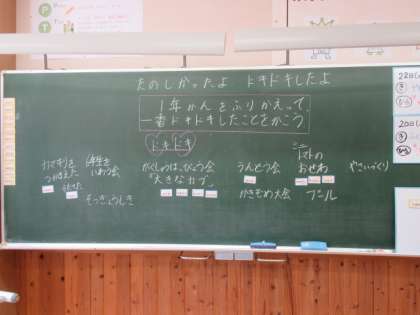 たのしかったよ ドキドキしたよ
1年かんをふりかえって、
一番ドキドキしたことをかこう。
ドキドキ
6年生を
いわう会
そつぎょうしき
がくしゅうはっぴょう会
"大きなカブ"
うんどう会
かきぞめ大会
ミニ
トマトの
おせわ
プール
やさいづくり
22日(
20日(